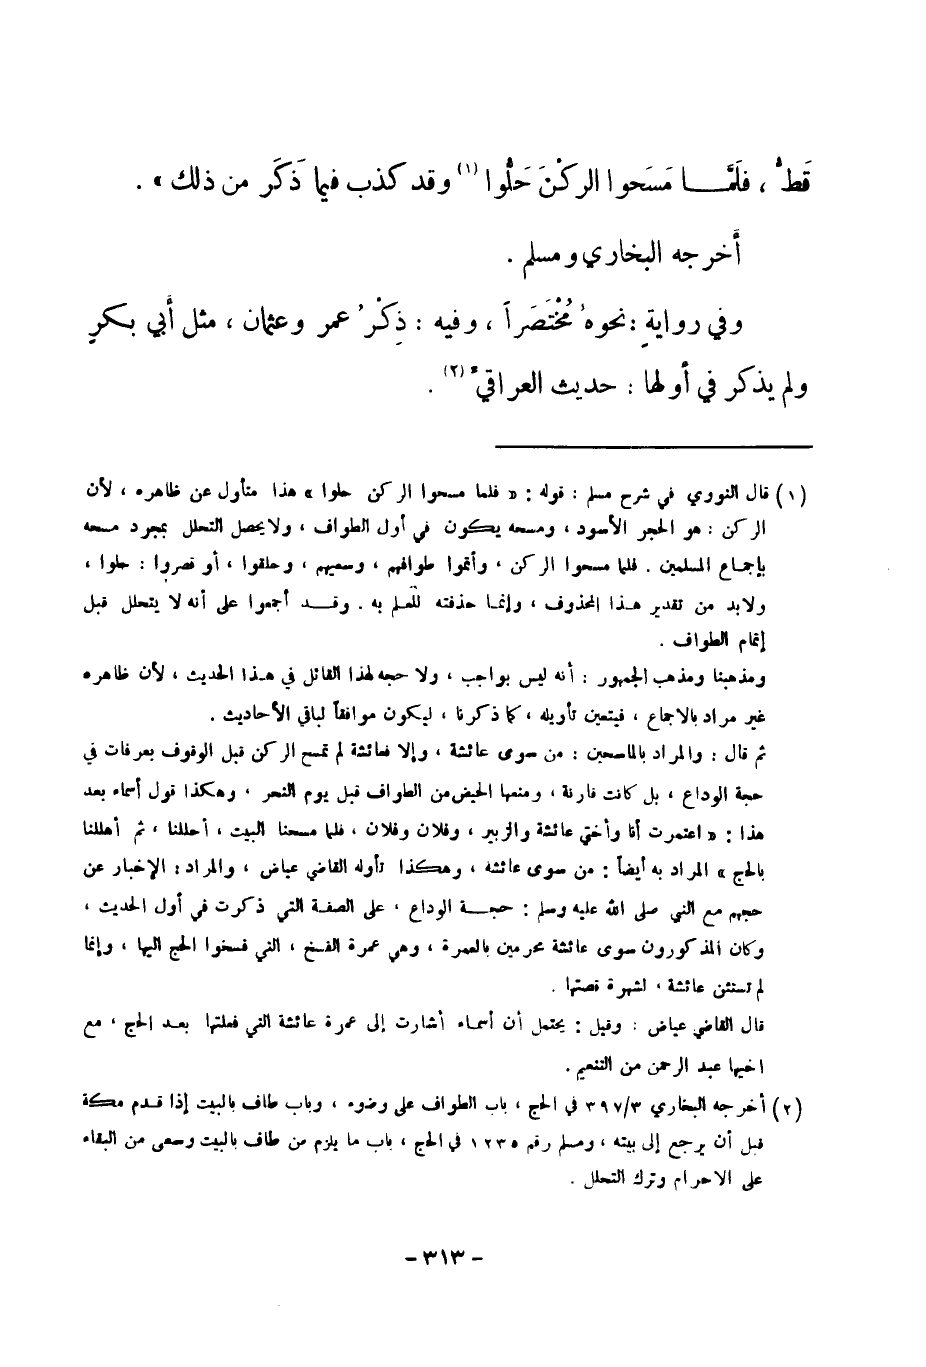 قَطُّ ، فَلَمَّــا مَسَحوا الركْنَ حَلُّوا (١) وقد كذب فيما ذَكَر من ذلك » .
أَخرجه البخاري ومسلم .
وفي روايةٍ : نحوهُ مُخْتَصَراً ، وفيه : ذِكْرُ عمر وعثمان ، مثل أبي بكرٍ
ولم يذكر في أَولها : حديث العراقيِّ (٢) .
(١) قال النووي في شرح مسلم : قوله : « فلما مسحوا الركن حلوا » هذا متأول عن ظاهره ، لأن
الركن : هو الحجر الأسود ، ومسحه يكون في أول الطواف ، ولايحصل التحلل بمجرد مسحه
بإجماع المسلمين . فلما مسحوا الركن ، وأتموا طوافهم ، وسعيهم ، وحلقوا ، أو قصروا : حلوا ،
ولابد من تقدير هـذا المحذوف ، وإنمـا حذفته للعلم به . وقـد أجمعوا على أنه لا يتحلل قبل
إتمام الطواف .
ومذهبنا ومذهب الجمهور : أنه ليس بواجب ، ولا حجه لهذا القائل في هـذا الحديث ، لأن ظاهره
غير مراد بالاجماع ، فيتعين تأويله ، كما ذكرنا ، ليكون موافقاً لباقي الأحاديث .
ثم قال : والمراد بالماسحين : من سوى عائشة ، وإلا فعائشة لم تمسح الركن قبل الوقوف بعرفات في
حجة الوداع ، بل كانت قارنة ، ومنعها الحيض من الطواف قبل يوم النحر ، وهكذا قول أسماء بعد
هذا : « اعتمرت أنا وأختي عائشة والزبير ، وفلان وفلان ، فلما مسحنا البيت ، أحللنا ، ثم أهللنا
بالحج » المراد به أيضاً : من سوى عائشة ، وهكذا تأوله القاضي عياض ، والمراد : الإخبار عن
حجهم مع النبي صلى الله عليه وسلم : حجـة الوداع ، على الصفة التي ذكرت في أول الحديث ،
وكان المذكورون سوى عائشة محرمين بالعمرة ، وهي عمرة الفسخ ، التي فسخوا الحج اليها ، وإنما
لم تستثن عائشة ، لشهرة قصتها .
قال القاضي عياض : وقيل : يحتمل أن أسماء أشارت إلى عمرة عائشة التي فعلتها بعد الحج ، مع
اخيها عبد الرحمن من التنعيم .
(٢) أخرجه البخاري ٣٩٧/٣ في الحج ، باب الطواف على وضوء ، وباب طاف بالبيت إذا قدم مكة
قبل أن يرجع إلى بيته ، ومسلم رقم ١٢٣٥ في الحج ، باب ما يلزم من طاف بالبيت وسعى من البقاء
على الاحرام وترك التحلل .
- ٣١٣ -